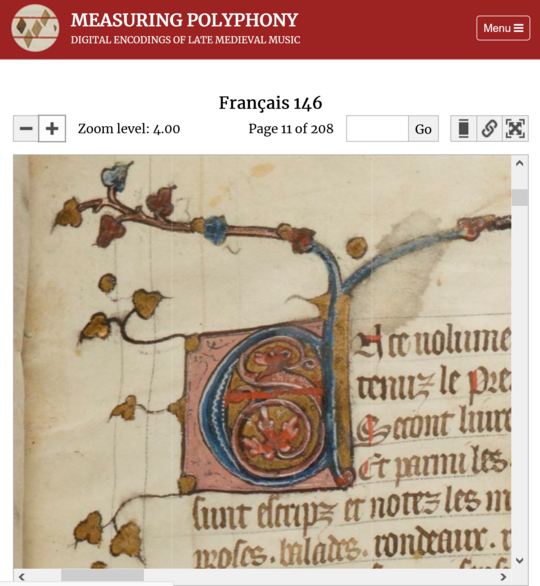 MEASURING POLYPHONY
DIGITAL ENCODINGS OF LATE MEDIEVAL MUSIC
Menu
Français 146
Zoom level: 4.00 Page 11 of 208 Go
EN ce volume
tenuz le Pre
Secont liure
Et parmi les
sunt escripz et notez les m
proses. balades. rondeaux. r